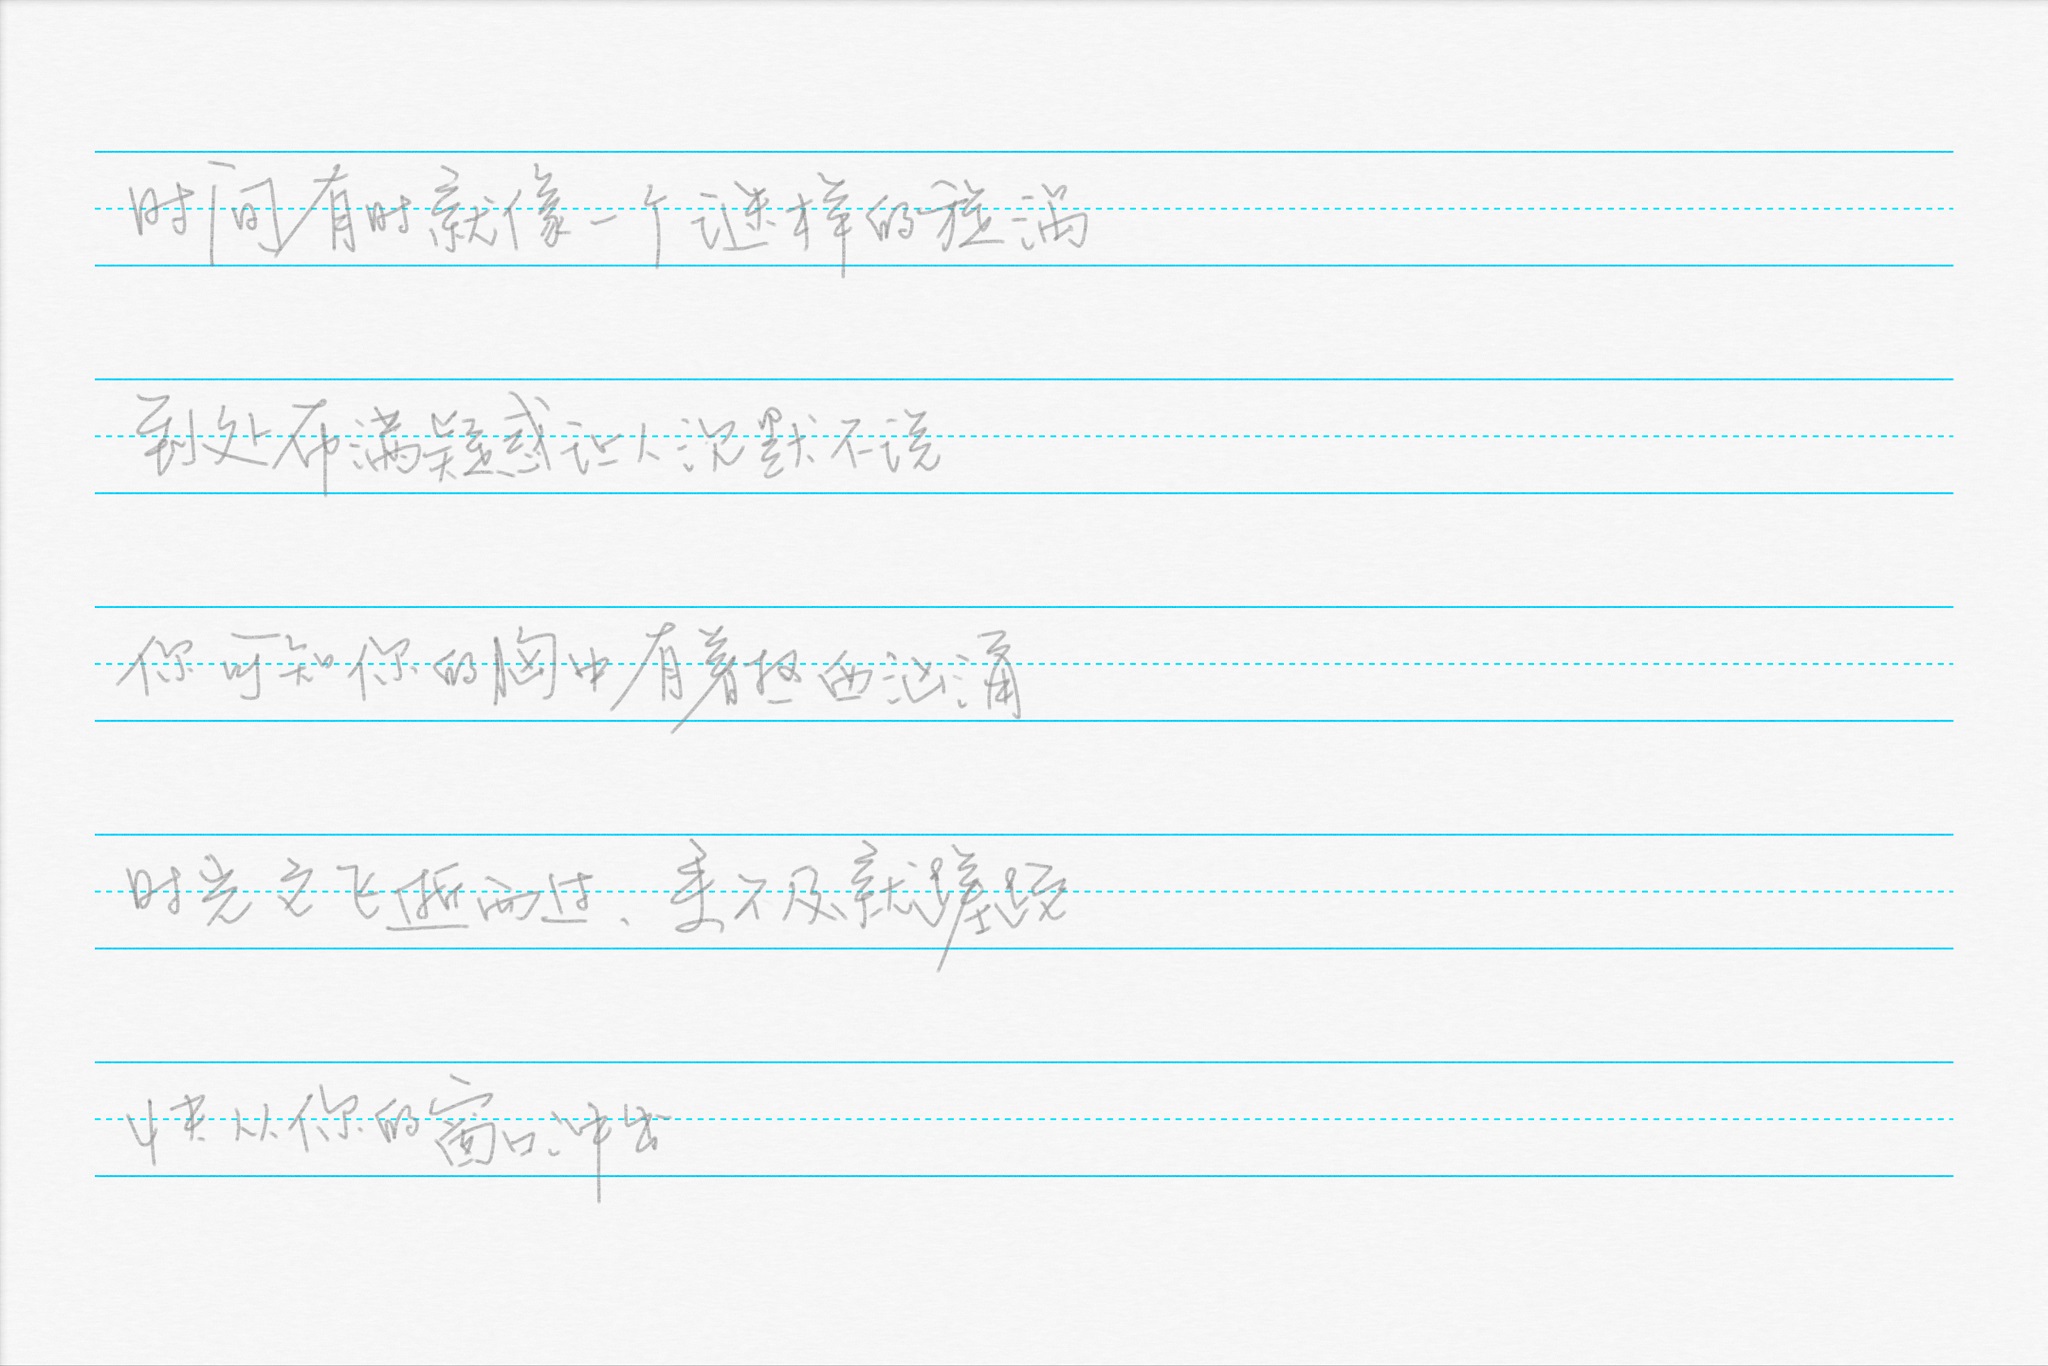 时间有时就像一个谜样的旋涡
到处布满疑惑让人沉默不说
你可知你的胸中有着热血汹涌
时光它飞逝而过、来不及就蹉跎
快从你的窗口冲出